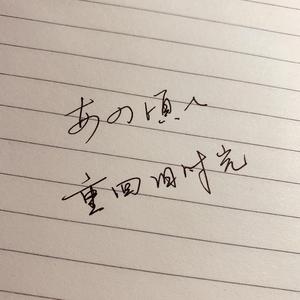 あの頃へ
重回旧时光